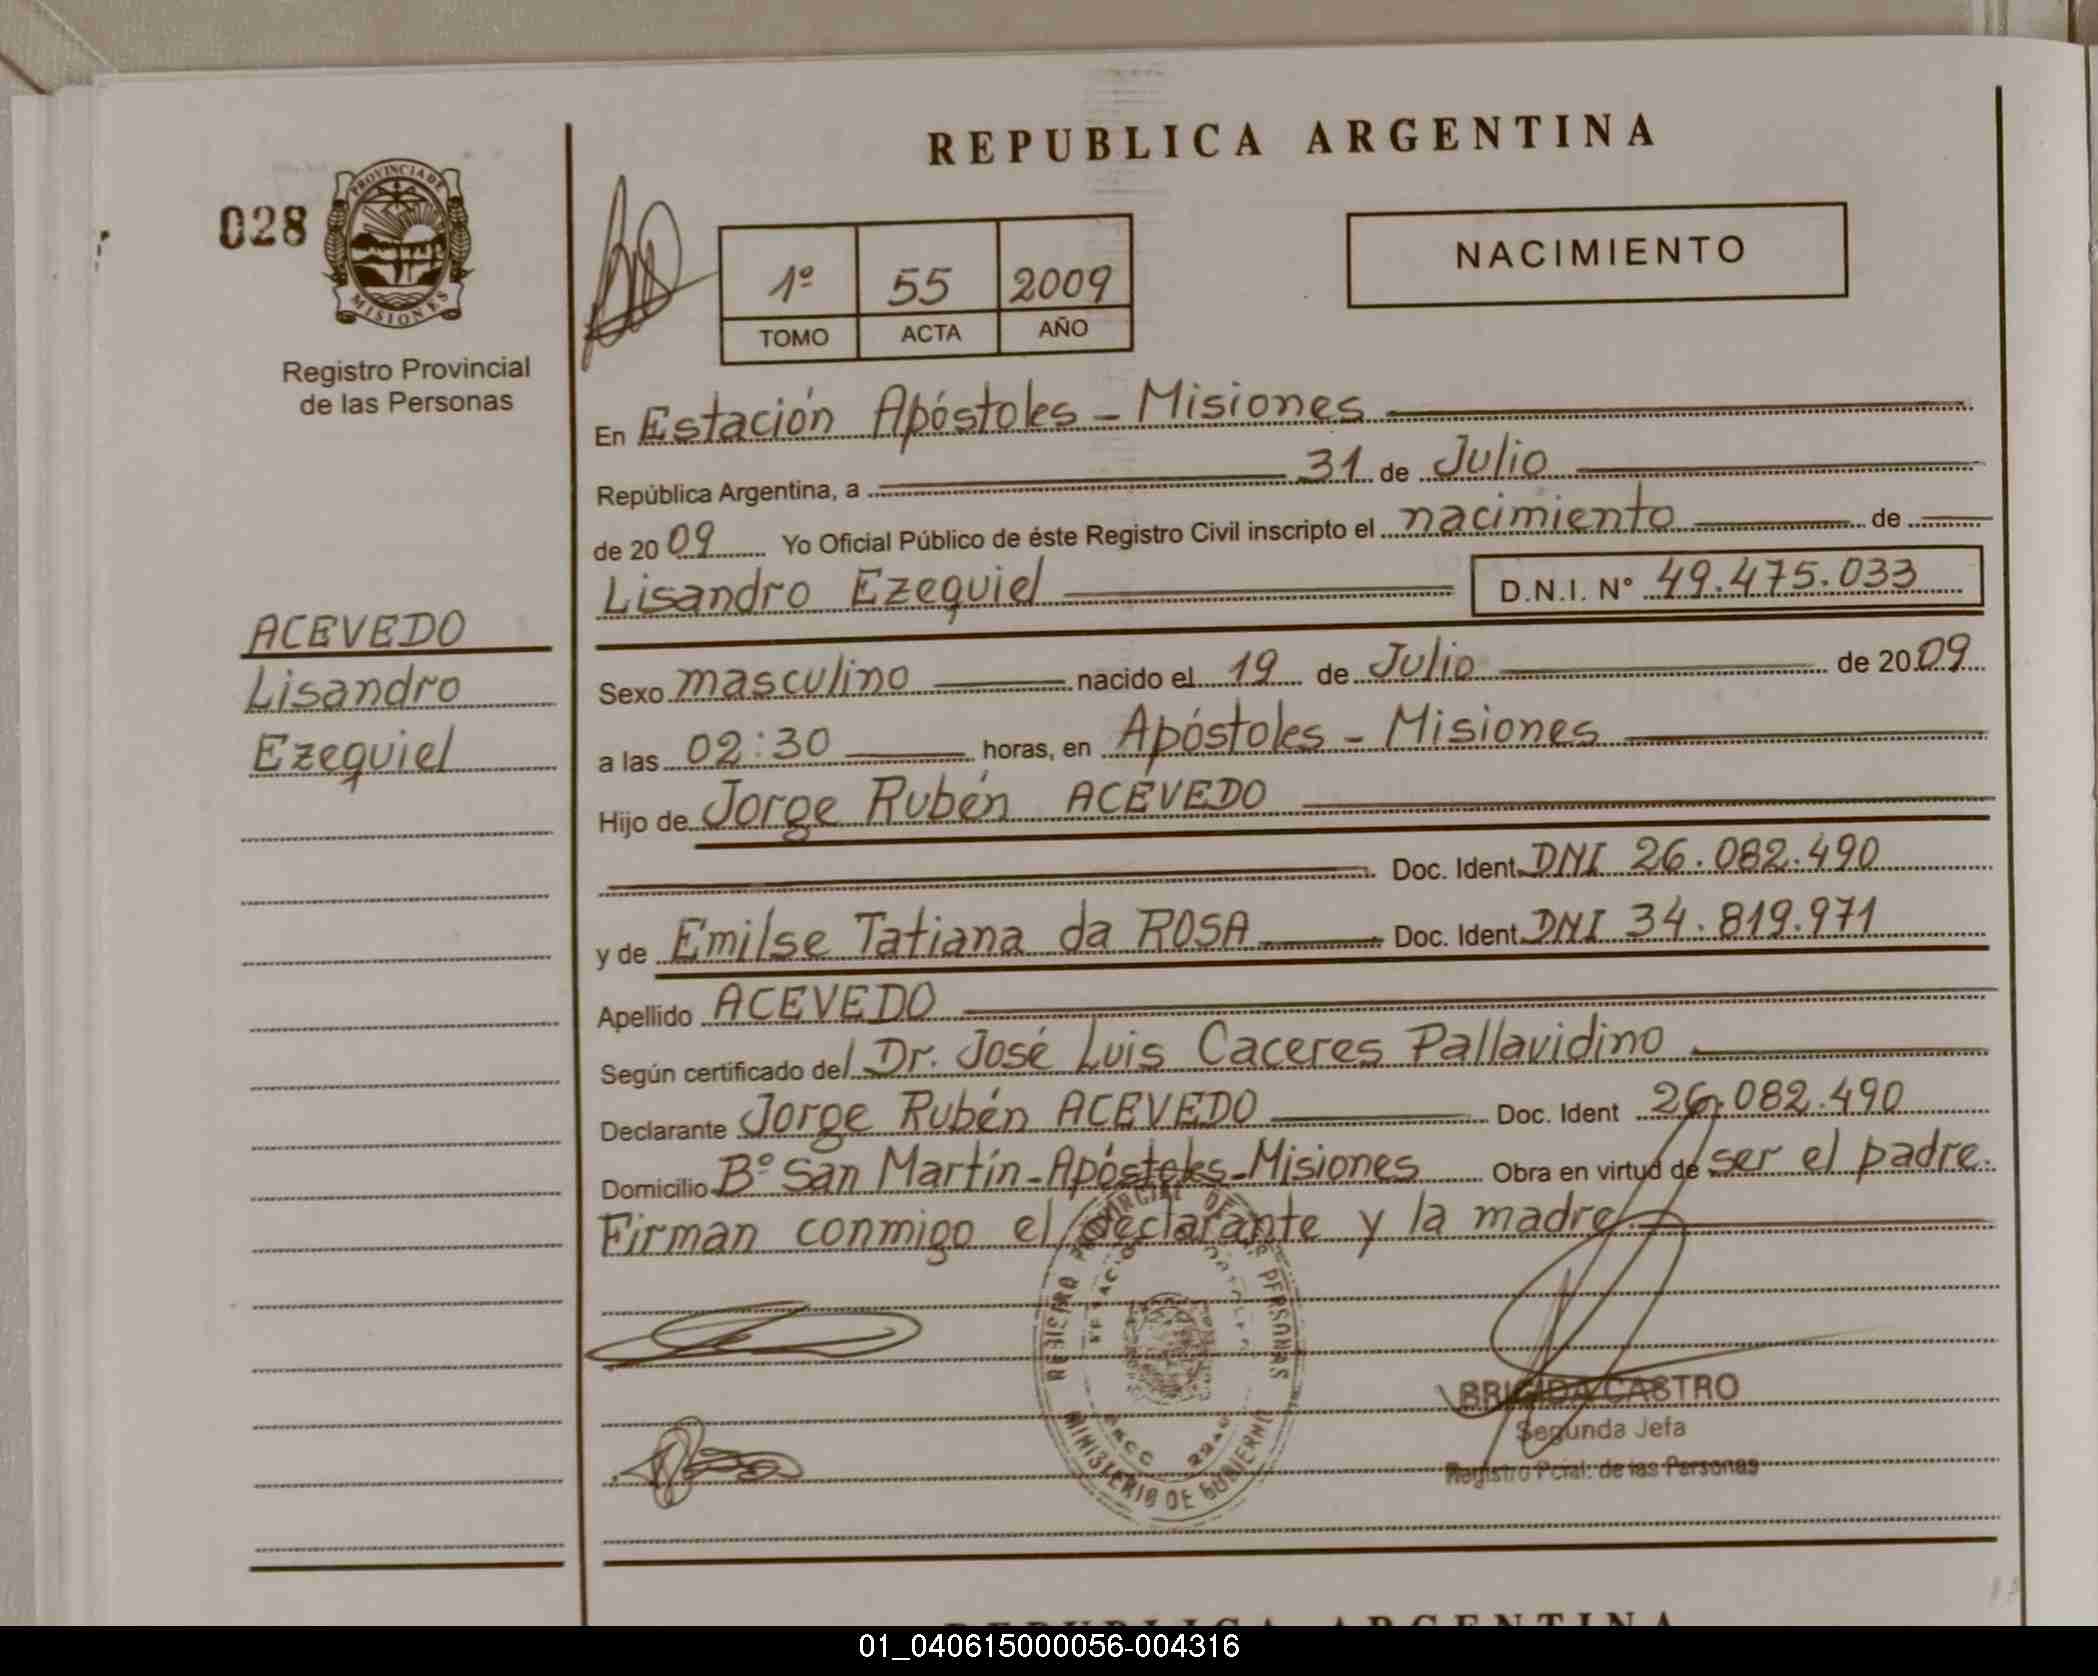 REPUBLICA ARGENTINA
028
PROVINCIA DE
MISIONES
Registro Provincial
de las Personas
NACIMIENTO
1º 55 2009
TOMO ACTA AÑO
En Estación Apóstoles - Misiones
República Argentina, a 31 de Julio
de 2009 Yo Oficial Público de éste Registro Civil inscripto el nacimiento de
Lisandro Ezequiel D.N.I. Nº 49.475.033
ACEVEDO
Lisandro
Ezequiel
Sexo masculino nacido el 19 de Julio de 2009
a las 02:30 horas, en Apóstoles - Misiones
Hijo de Jorge Rubén ACEVEDO
Doc. Ident. DNI 26.082.490
y de Emilse Tatiana da ROSA Doc. Ident. DNI 34.819.971
Apellido ACEVEDO
Según certificado del Dr. José Luis Caceres Pallavidino
Declarante Jorge Rubén ACEVEDO Doc. Ident 26.082.490
Domicilio Bº San Martín - Apóstoles - Misiones Obra en virtud de ser el padre.
Firman conmigo el declarante y la madre.
REGISTRO PROVINCIAL DE LAS PERSONAS
MINISTERIO DE GOBIERNO
BRIGIDA CASTRO
Segunda Jefa
Registro Pcial. de las Personas
REPUBLICA ARGENTINA
01_040615000056-004316